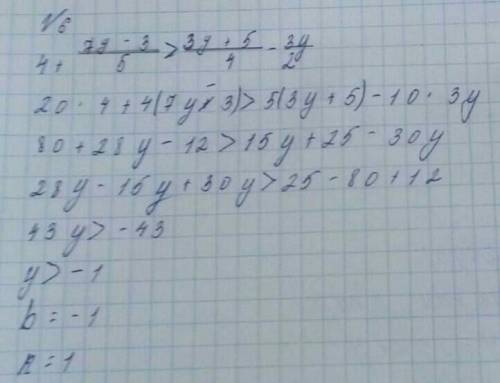 №6
4 + (7y - 3)/5 > (3y + 5)/4 - 3y/2
20 · 4 + 4(7y - 3) > 5(3y + 5) - 10 · 3y
80 + 28y - 12 > 15y + 25 - 30y
28y - 15y + 30y > 25 - 80 + 12
43y > -43
y > -1
b = -1
n = 1